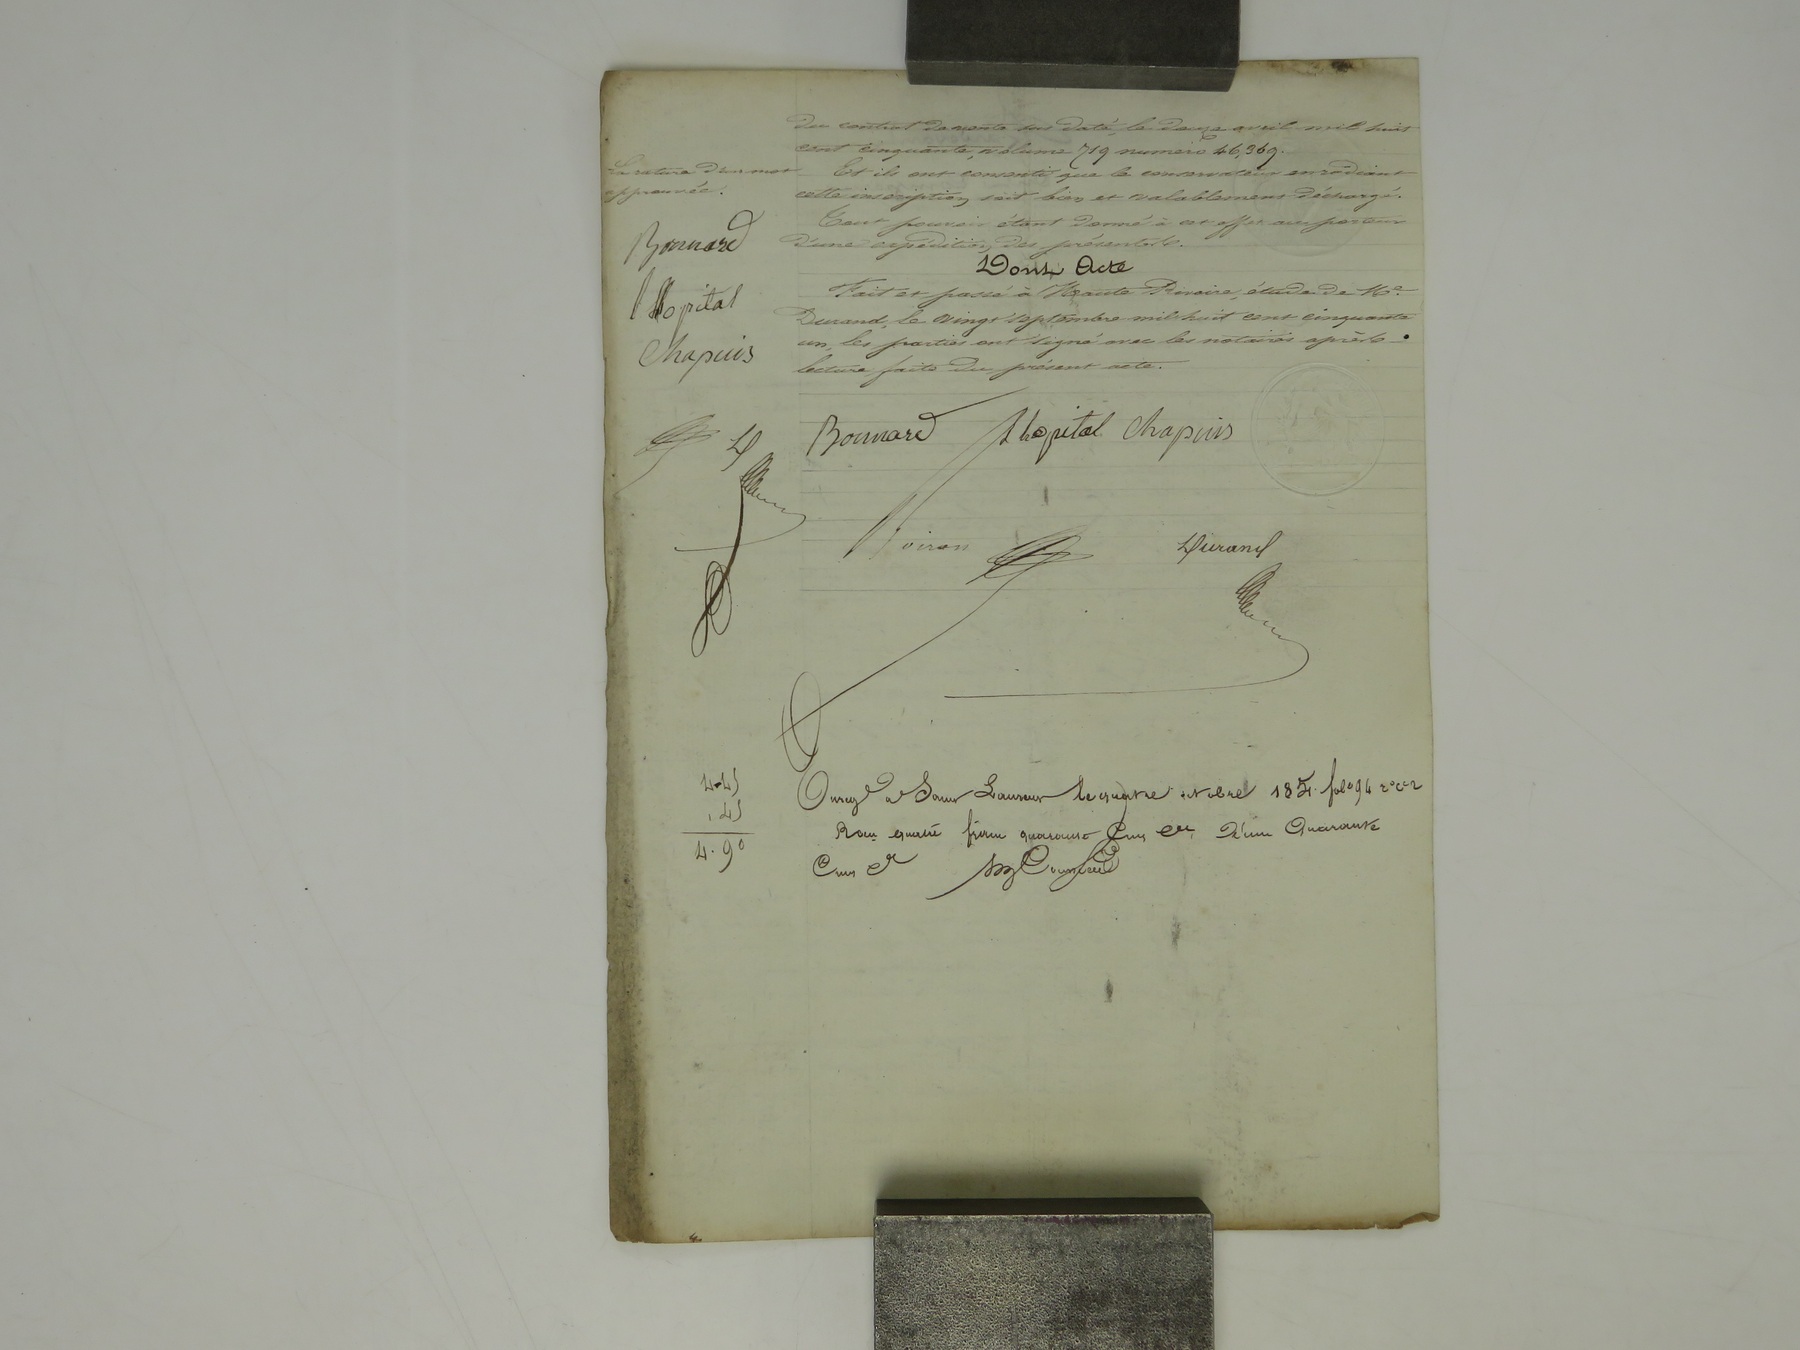 du contrat de vente sus daté, le douze avril mil huit
cent cinquante, volume 719 numero 46,369.
Et ils ont consenti que le conservateur en radiant
cette inscription, soit bien et valablement déchargé.
Tout pouvoir étant donné à cet effet au porteur
d'une expédition des présentes.
Dont Acte
Fait et passé à Haute Rivoire, étude de Me
Durand, le vingt septembre mil huit cent cinquante
un, les parties ont signé avec les notaires après
lecture faite du présent acte.
La rature d'un mot
approuvée.
Bonnard
l'hopital
Chapuis
Bonnard lhopital Chapuis
Voiron Durand
4.45
.45
4.90
Enregé à Saint Laurent le quatre octobre 1851 folo 94
Reçu quatre francs quarante Cinq d'un Quarante
Cinq